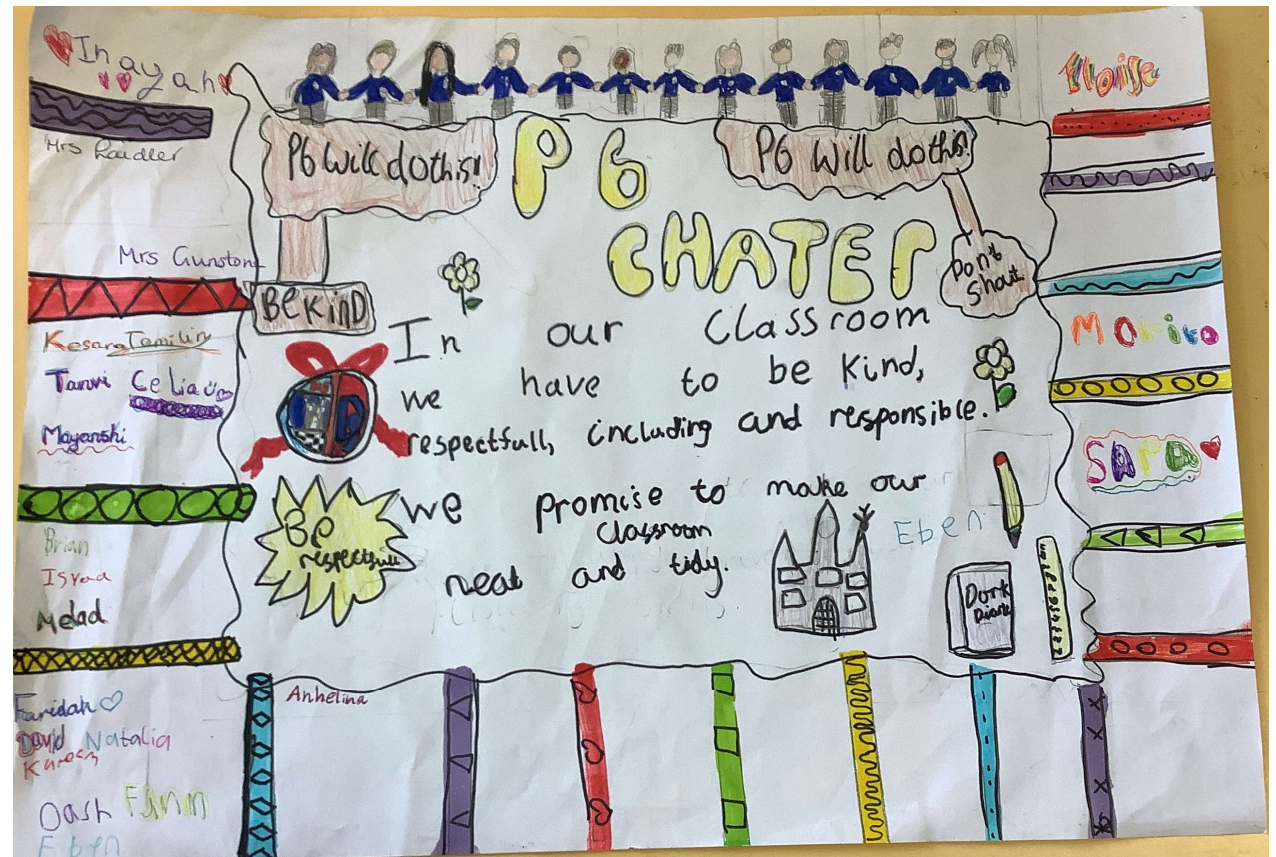 Inayah
Mrs Laidler
Mrs Gunstone
Kesara Tamilin
Tanvi Celia
Mayanshi
Brian
Israa
Melad
Faridah
David Natalia
Kareem
Dash Finn
Eben
P6 Will do this!!
P6 Will do this!
P6
CHATER
BE KIND
Don't
Shout
In our Classroom
we have to be Kind,
respectfull, including and responsible.
we promise to make our
Classroom
neat and tidy.
Be
respectfull
Eben
Dork
Diary
Anhelina
Eloise
Mariko
SARA